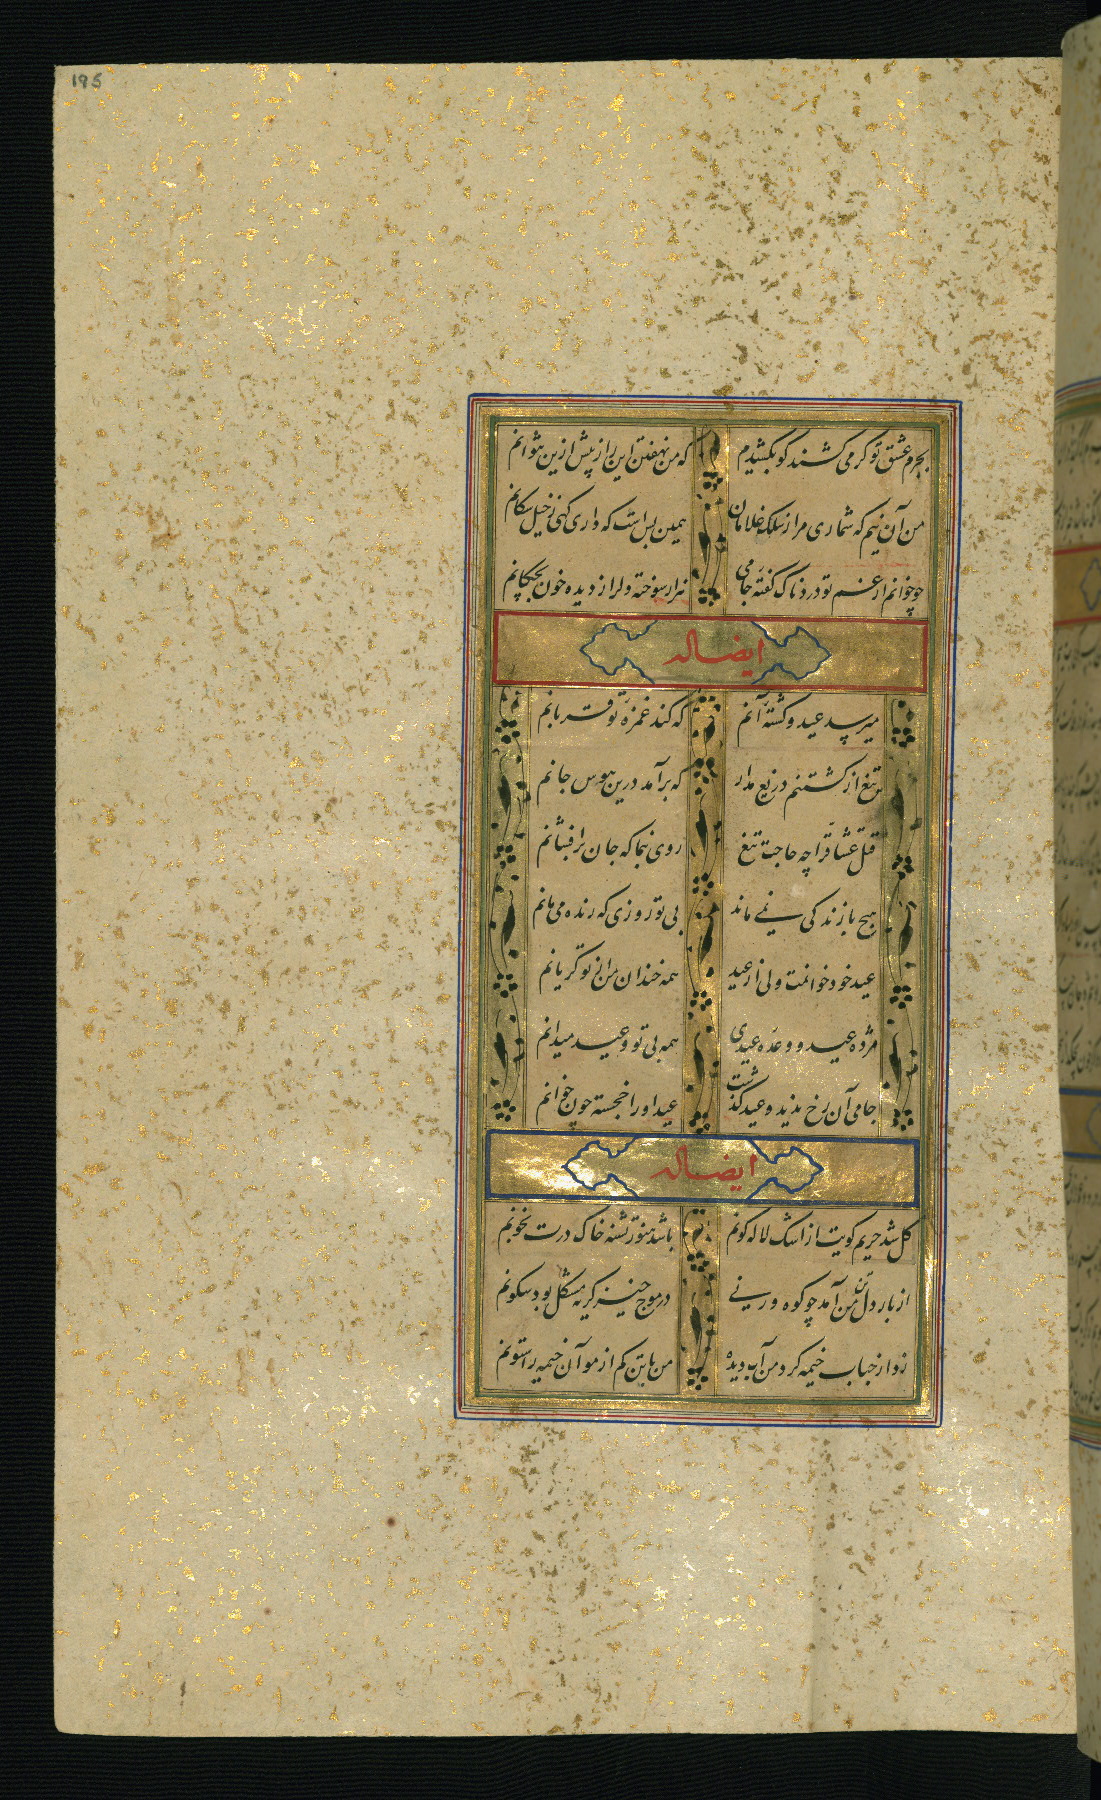 195
بجرم عشق تو گر می کشند گو بکشیدم که من نهفتن این راز پیش ازین نتوانم
من آن نیم که شماری مرا ز سلک غلامان همین بس است که داری کهی ز خیل سکانم
چو خوانم از غم تو دردناک گفته جامی هزار سوخته دل را ز دیده خون بچکانم
ایضا له
میرسد عید و کشته آنم که کند غمزه تو قربانم
تیغ از کشتنم دریغ مدار که برآمد درین هوس جانم
قتل عشاق را چه حاجت تیغ روی بنما که جان برافشانم
هیچ با زندگی نمی ماند بی تو روزی که زنده می مانم
عید خود خوانمت ولی از عید همه خندان من از تو گریانم
مژده عید و وعده عیدی همه بی تو وعید میدانم
جامی آن رخ ندیده عید گذشت عید او را خجسته چون خوانم
ایضا له
گل شد حریم کویت از اشک لاله گونم باشد هنوز تشنه خاک درت بخونم
از بار دل تن من آمد چو کوه ورنی در موج خیز گریه مشکل بود سکونم
زد از حباب خیمه گرد من آب دیده من با تن کم از مو آن خیمه را ستونم